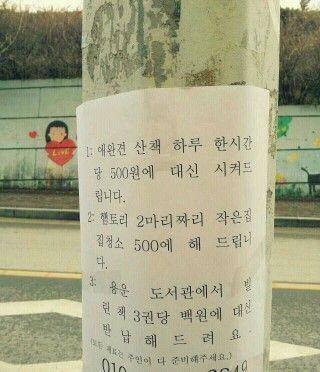 1: 애완견 산책 하루 한시간
당 500원에 대신 시켜드
립니다.
2: 햄토리 2마리짜리 작은집
집청소 500에 해 드립니
다.
3: 용운 도서관에서 빌
린 책 3권당 백원에 대신
반납해드려요.
(모든 재료는 주인이 다 준비해주세요.)
010
LOVE